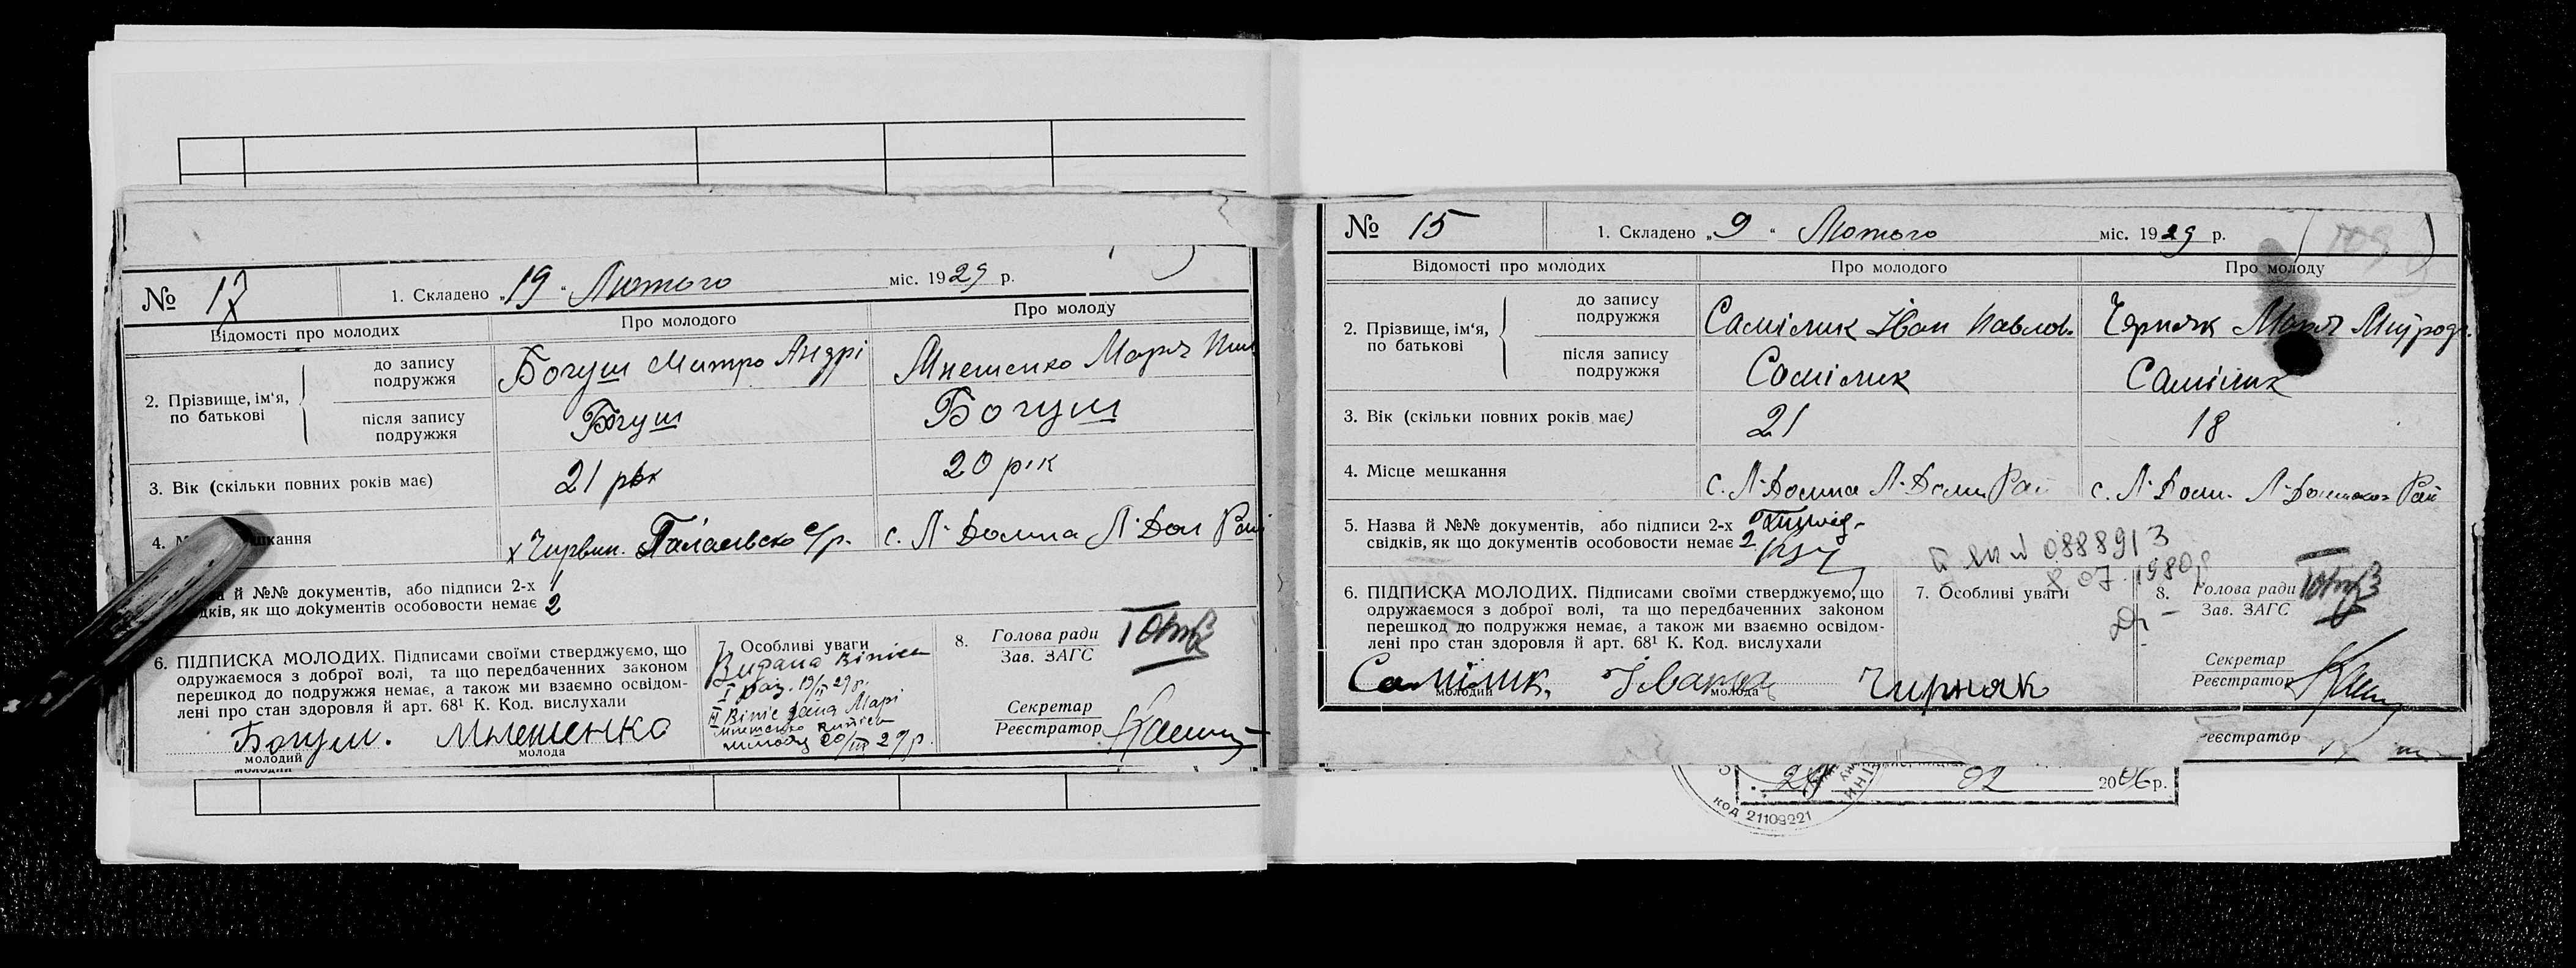 № 17 1. Складено „19“ Лютого міс. 1929 р.
Відомості про молодих Про молодого Про молоду
2. Прізвище, ім'я, по батькові
до запису подружжя Богуш Митро Андрі Мнешенко Марія
після запису подружжя Богуш Богуш
3. Вік (скільки повних років має) 21 рік 20 рік
4. М шкання х Чирвин. с/р. с. Л. Долина Л. Дол Рай
й №№ документів, або підписи 2-х 1
дків, як що документів особовости немає 2
6. ПІДПИСКА МОЛОДИХ. Підписами своїми стверджуємо, що
одружаємося з доброї волі, та що передбаченних законом
перешкод до подружжя немає, а також ми взаємно освідом-
лені про стан здоровля й арт. 68¹ К. Код. вислухали
Богуш. Мнешенко
молодий молода
молодий
7. Особливі уваги
Видана Вініси
I раз. 19/II 29р.
II Вініс дана Марі
20/III 29р.
8. Голова ради
Зав. ЗАГС
Секретар
Реєстратор
№ 15 1. Складено „9“ Лютого міс. 1929 р.
Відомості про молодих Про молодого Про молоду
2. Прізвище, ім'я, по батькові
до запису подружжя Самілик Іван Павлов. Черняк Марія
після запису подружжя Самілик Самілик
3. Вік (скільки повних років має) 21 18
4. Місце мешкання с. Л. Долина Л. Долин Рай с. Л. Доли. Рай
5. Назва й №№ документів, або підписи 2-х
свідків, як що документів особовости немає 2
0888913
8 07 1980р
6. ПІДПИСКА МОЛОДИХ. Підписами своїми стверджуємо, що
одружаємося з доброї волі, та що передбаченних законом
перешкод до подружжя немає, а також ми взаємно освідом-
лені про стан здоровля й арт. 68¹ К. Код. вислухали
Самілик, Іван Чирняк
молодий молода
7. Особливі уваги
8. Голова ради
Зав. ЗАГС
Секретар
Реєстратор
еєстратор
02 2006 р.
код 21109221